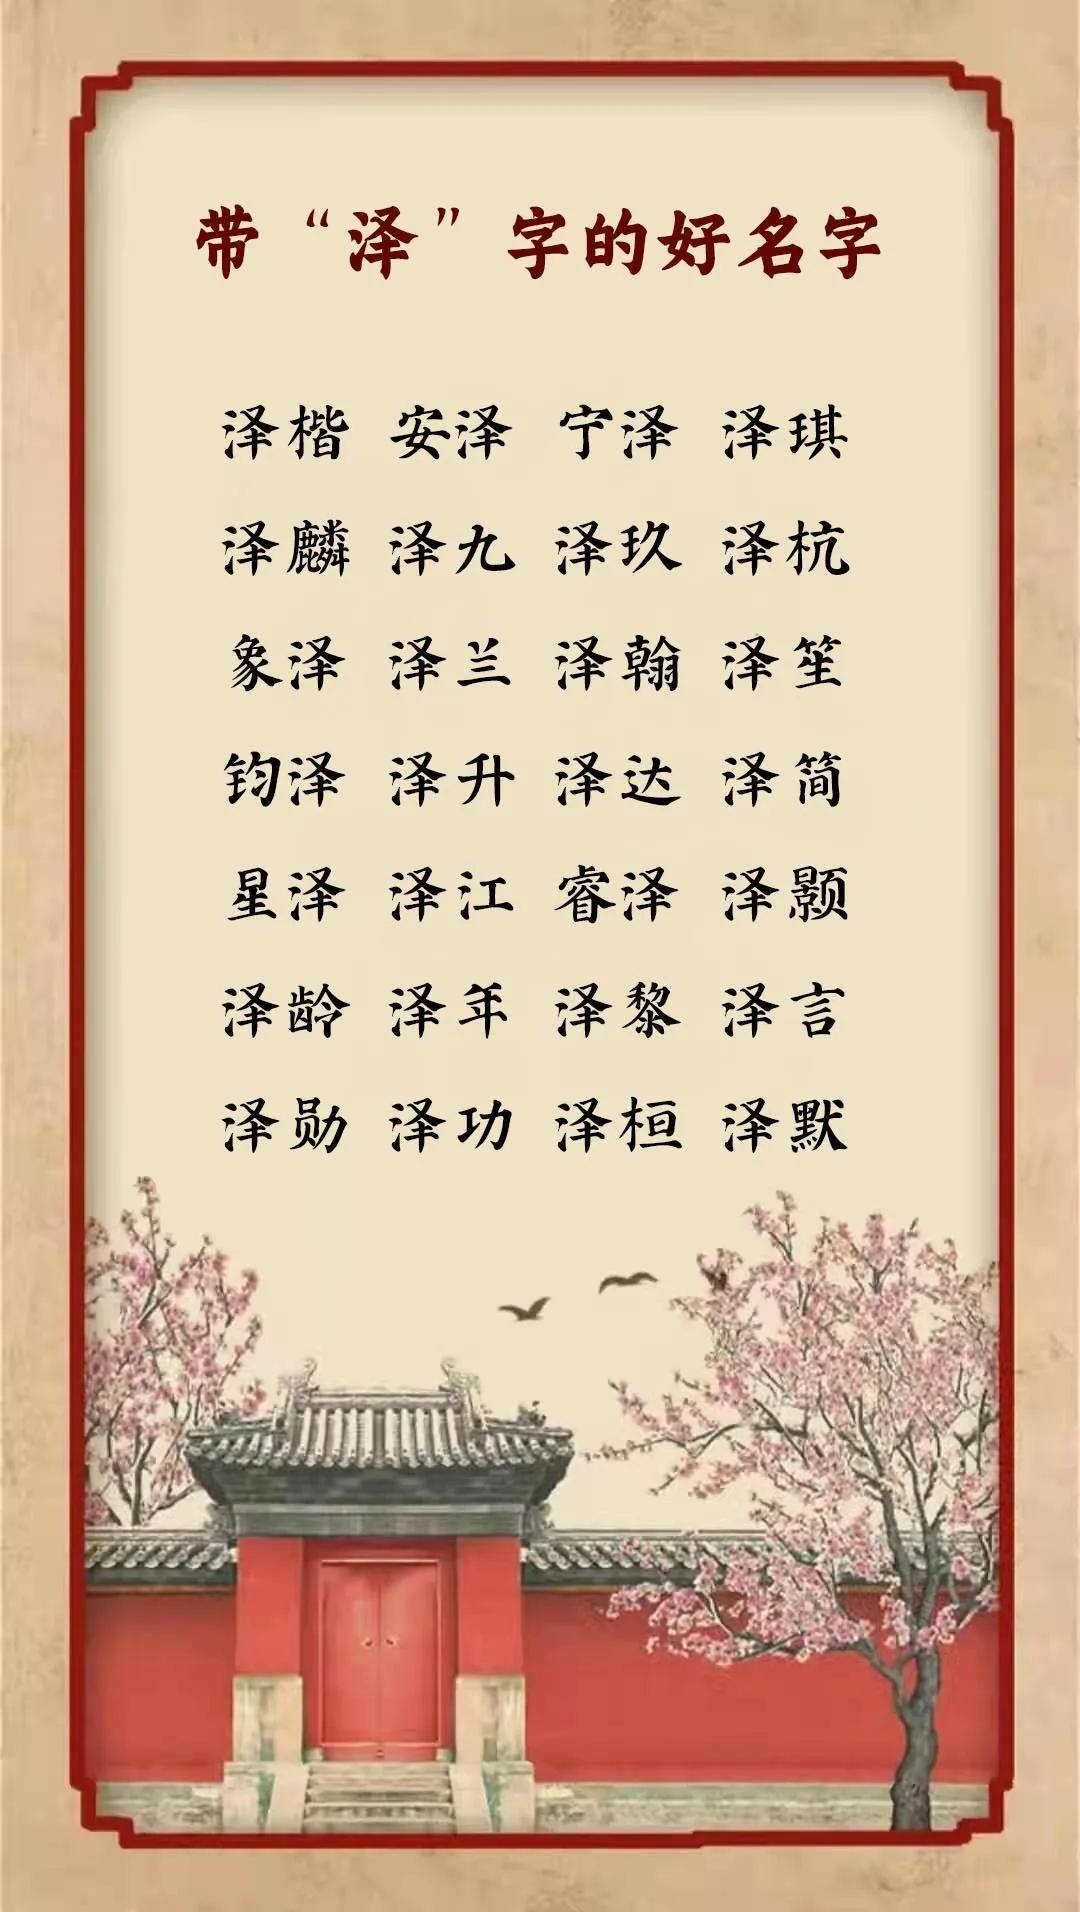 带“泽”字的好名字
泽楷 安泽 宁泽 泽琪
泽麟 泽九 泽玖 泽杭
象泽 泽兰 泽翰 泽笙
钧泽 泽升 泽达 泽简
星泽 泽江 睿泽 泽颢
泽龄 泽年 泽黎 泽言
泽勋 泽功 泽桓 泽默